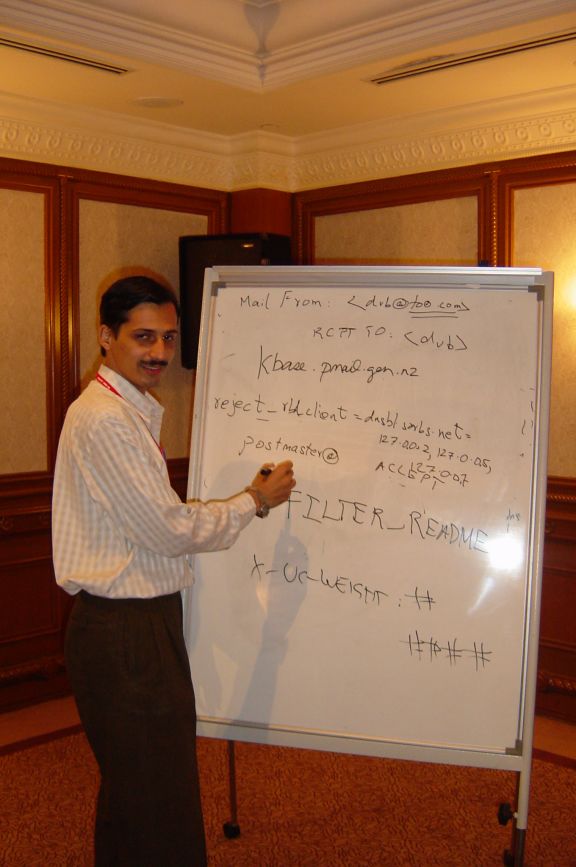 Mail From: <dvb@foo.com>
RCPT TO: <dvb>
kbase.pmail.gen.nz
reject_rbl_client = dnsbl.sorbs.net=
127.0.0.2, 127.0.0.5,
127.0.0.7
postmaster@
ACCEPT
FILTER_README
X-UC-WEIGHT: #
####